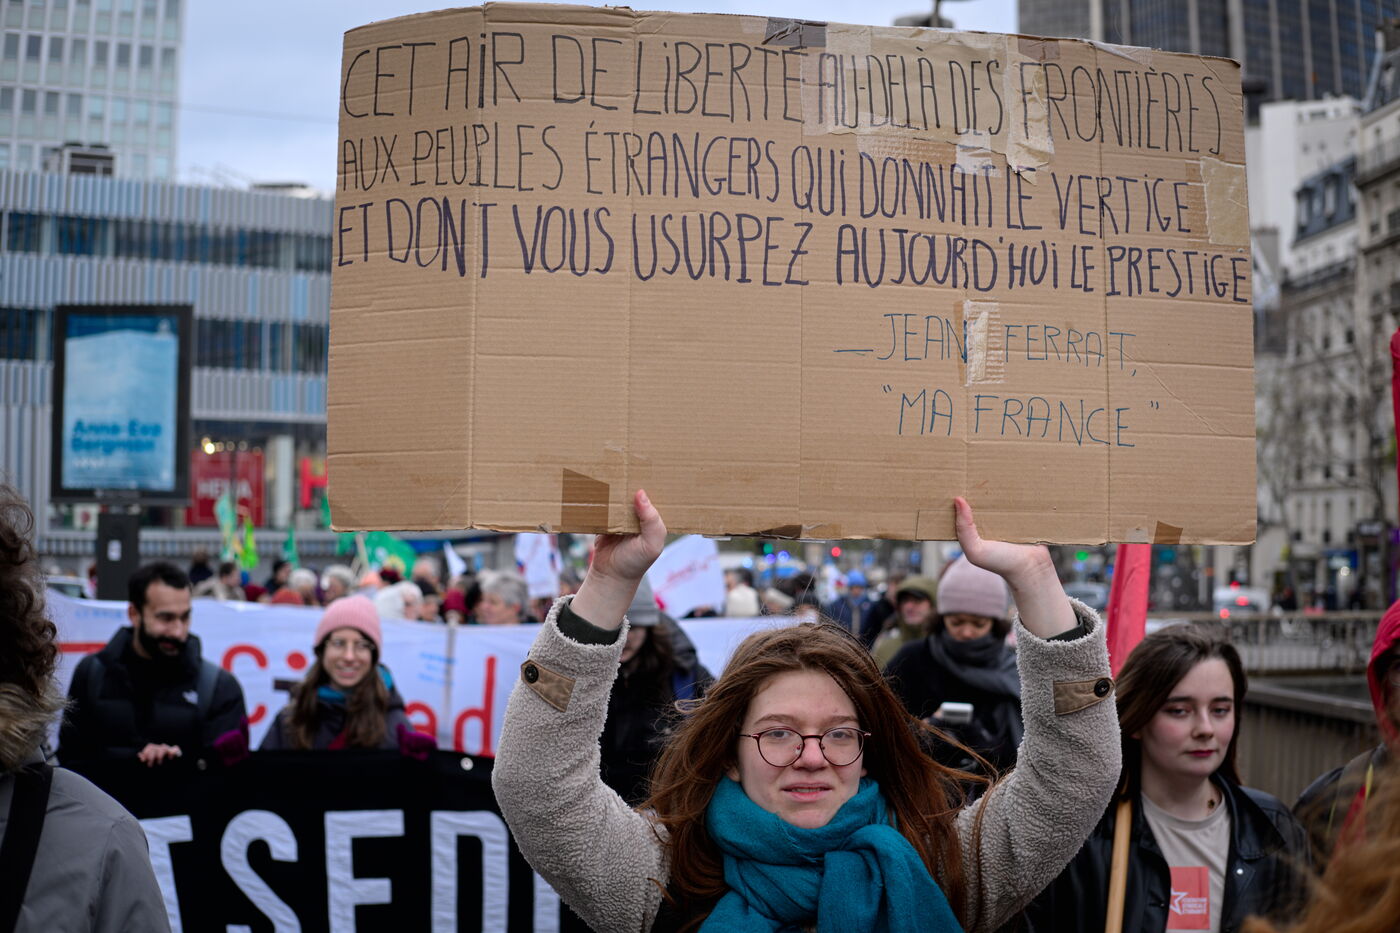 CET AiR DE LiBERTÉ AU-DELÀ DES FRONTIÈRES
AUX PEUPLES ÉTRANGERS QUi DONNAIT LE VERTIGE
ET DONT VOUS USURPEZ AUJOURD'HUi LE PRESTiGE
— JEAN FERRAT,
"MA FRANCE"
Anne-Eva
Bergman
HEMA
H
TSED